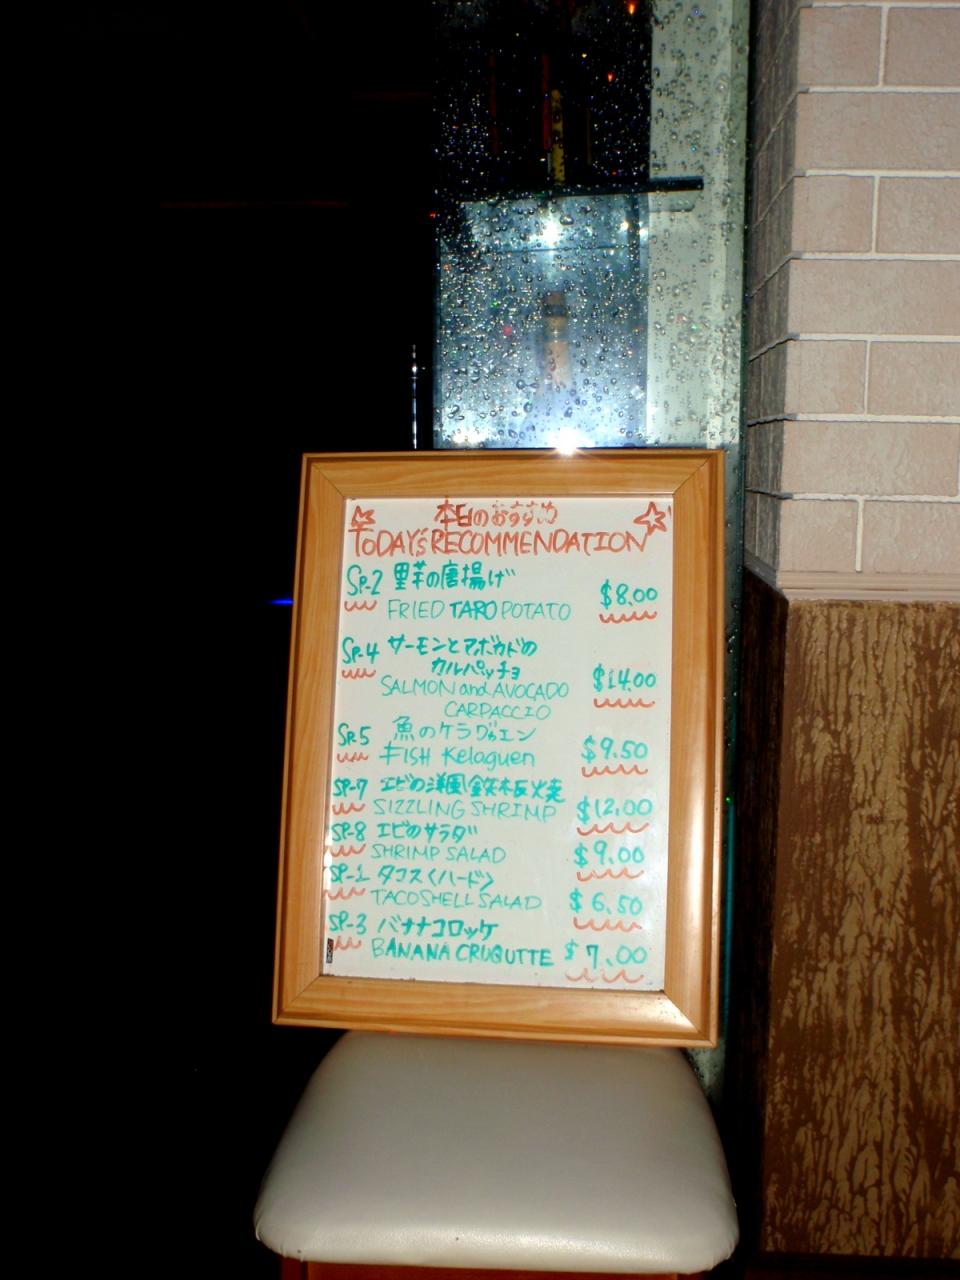 本日のおすすめ
TODAY'S RECOMMENDATION
SP-2 里芋の唐揚げ
FRIED TARO POTATO $8.00
SP-4 サーモンとアボカドの
カルパッチョ
SALMON and AVOCADO $14.00
CARPACCIO
SP-5 魚のケラグゥエン
FISH Kelaguen $9.50
SP-7 エビの洋風鉄板焼
SIZZLING SHRIMP $12.00
SP-8 エビのサラダ
SHRIMP SALAD $9.00
SP-1 タコス〈ハード〉
TACO SHELL SALAD $6.50
SP-3 バナナコロッケ
BANANA CRUQUTTE $7.00